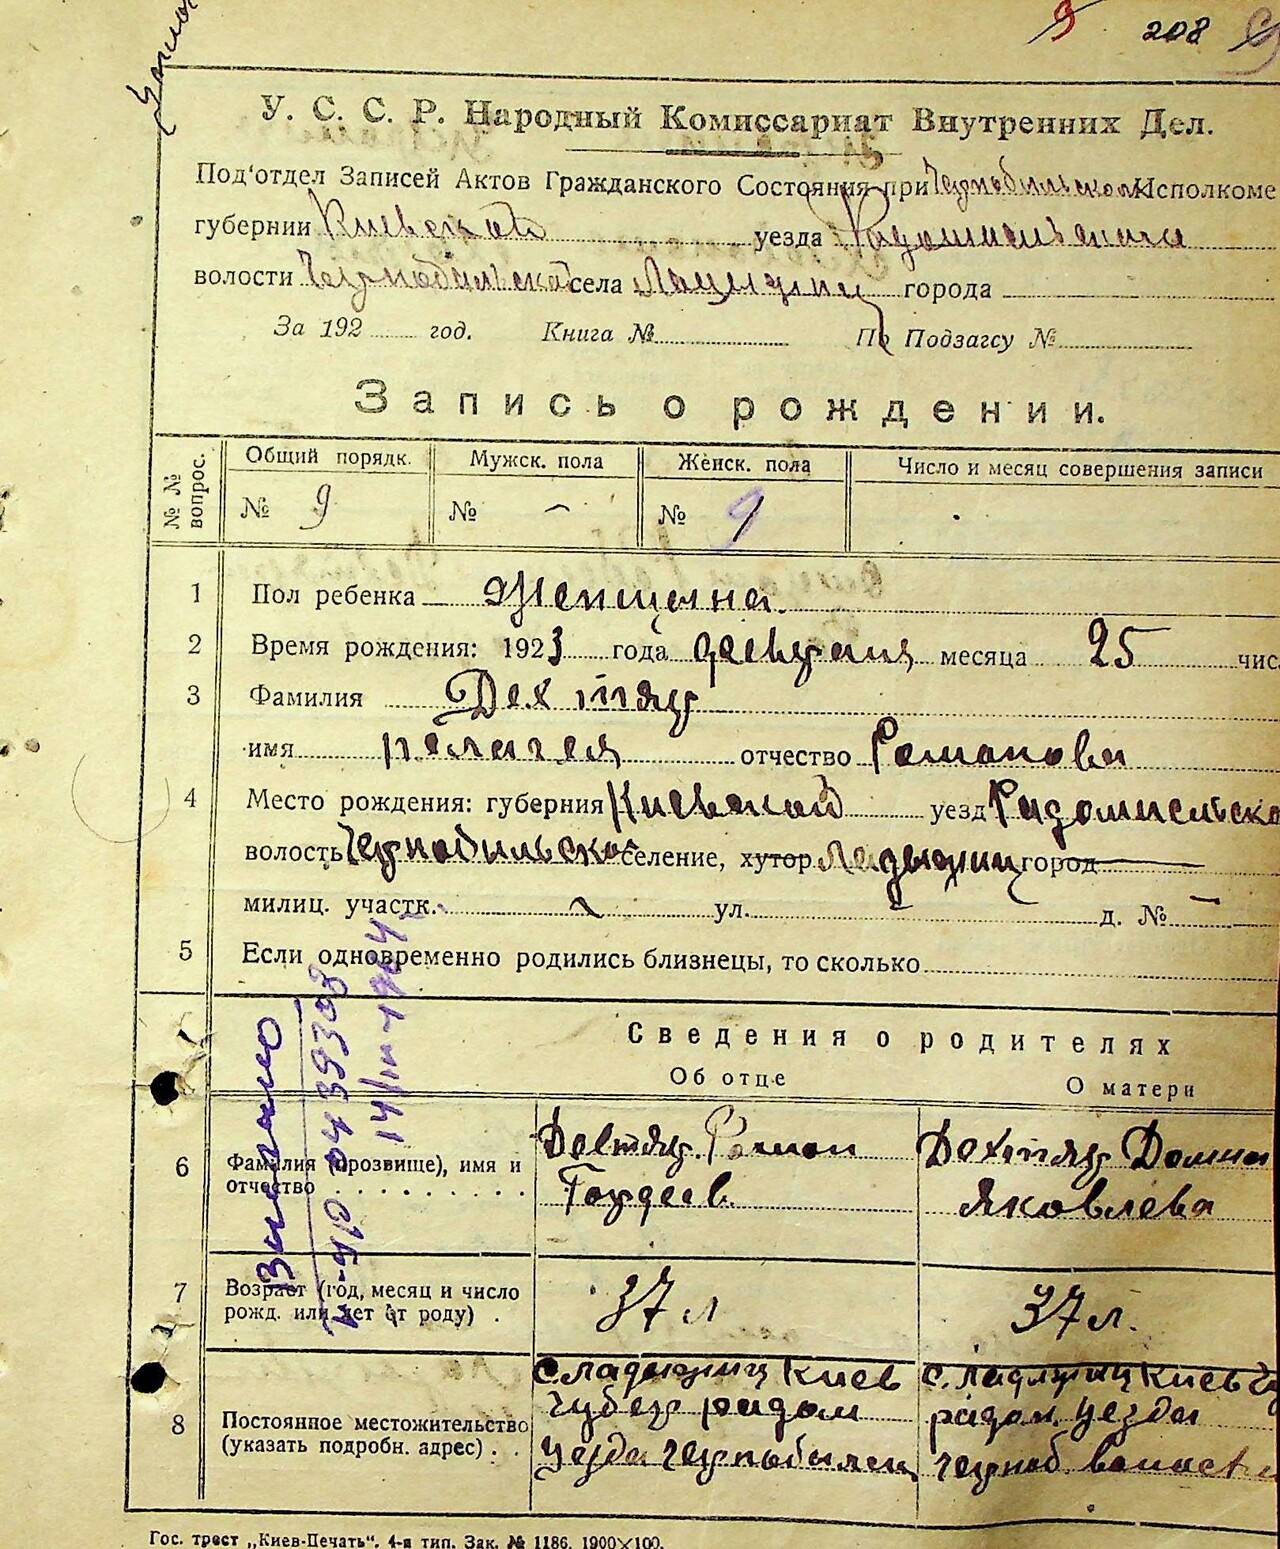 9 208 9
У. С. С. Р. Народный Комиссариат Внутренних Дел.
Под'отдел Записей Актов Гражданского Состояния при Чернобильском Исполкоме
губернии Киевской уезда Радомисльского
волости Чернобильской села города
За 192 год. Книга № По Подзагсу №
Запись о рождении.
№ № вопрос.
Общий порядк. Мужск. пола Женск. пола Число и месяц совершения записи
№ 9 № — № 9
1 Пол ребенка Женщина.
2 Время рождения: 1923 года февраля месяца 25 чис.
3 Фамилия Дехтяр
имя Пелагея отчество Романова
4 Место рождения: губерния Киевской уезд Радомисльско
волость Чернобильской селение, хутор Ладыжичі город
милиц. участк. — ул. д. № —
5 Если одновременно родились близнецы, то сколько
Сведения о родителях
Об отце О матери
6 Фамилия (прозвище), имя и отчество
Девтяр. Роман
Гордеев.
Дехтяр Домна
Яковлева
7 Возраст (год, месяц и число рожд. или лет от роду) .
37 л
37 л.
8 Постоянное местожительство (указать подробн. адрес) . .
с. Ладижич Киев
Губер радом
Уезда Чернобылск
с. Ладижич Киев Гу
радом. Уезда
Черноб волости
Выслано
0439303
14/III-1984
Гос. трест „Киев-Печать“. 4-я тип. Зак. № 1186. 1900×100.